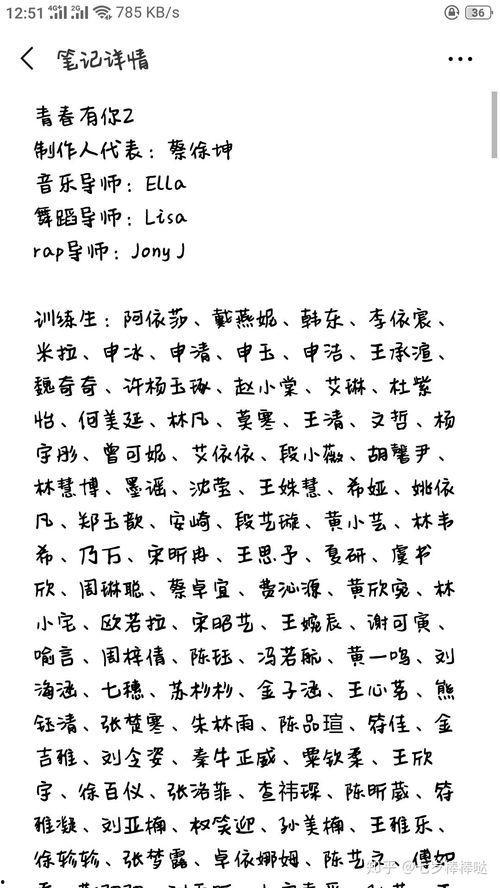 12:51 4G 2G 785 KB/s 36
笔记详情
青春有你2
制作人代表：蔡徐坤
音乐导师：Ella
舞蹈导师：Lisa
rap导师：Jony J
训练生：阿依莎、戴燕妮、韩东、李依宸、
米拉、申冰、申清、申玉、申洁、王承渲、
魏奇奇、许杨玉琢、赵小棠、艾琳、杜紫
怡、何美延、林凡、莫寒、王清、文哲、杨
宇彤、曾可妮、艾依依、段小薇、胡馨尹、
林慧博、墨谣、沈莹、王姝慧、希娅、姚依
凡、郑玉歆、安崎、段艺璇、黄小芸、林韦
希、乃万、宋昕冉、王思予、夏研、虞书
欣、周琳聪、蔡卓宜、费沁源、黄欣苑、林
小宅、欧若拉、宋昭艺、王婉辰、谢可寅、
喻言、周梓倩、陈珏、冯若航、黄一鸣、刘
海涵、七穗、苏杉杉、金子涵、王心茗、熊
钰清、张楚寒、朱林雨、陈品瑄、符佳、金
吉雅、刘令姿、秦牛正威、粟钦柔、王欣
宇、徐百仪、张洛菲、查祎琛、陈昕葳、符
雅凝、刘亚楠、权笑迎、孙美楠、王雅乐、
徐轸轸、张梦露、卓依娜姆、陈艺文、傅如
知乎 @七夕棒棒哒